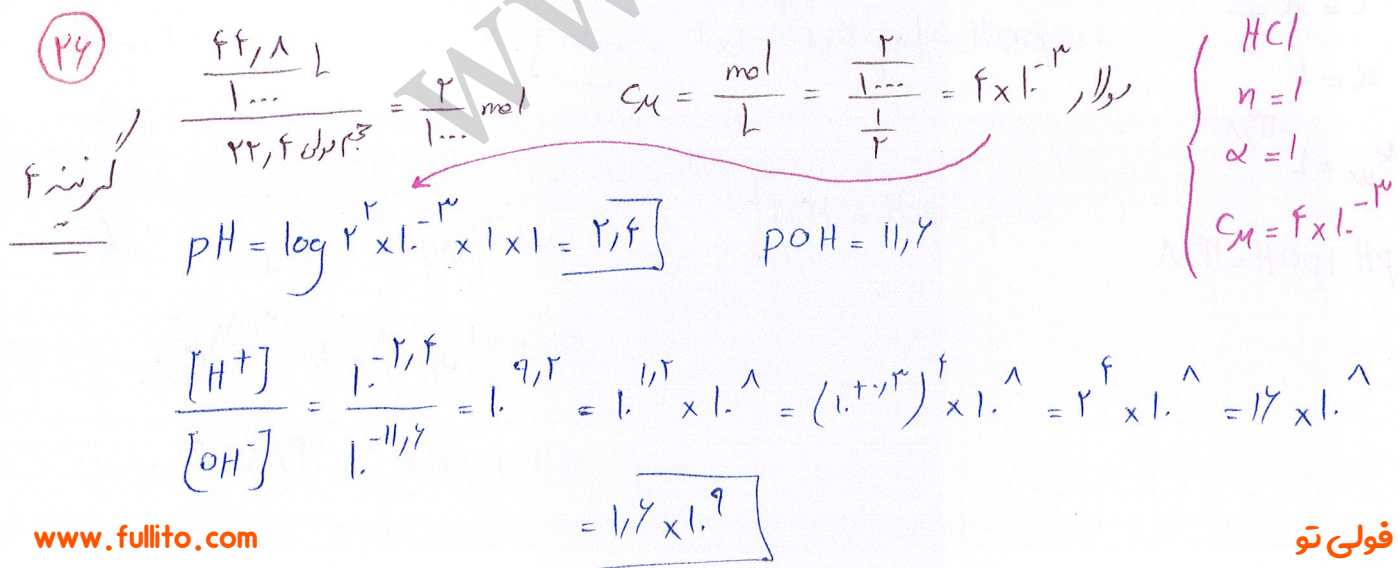 ۲۶
گزینه ۴
۴۴,۸ / ۱۰۰۰ L / ۲۲,۴ حجم مولی = ۲ / ۱۰۰۰ mol
CM = mol / L = ۲ / ۱۰۰۰ / ۱ / ۲ = ۴ × ۱۰^-۳ مولار
HCl
n = 1
α = 1
CM = ۴ × ۱۰^-۳
pH = log ۲^۲ × ۱۰^-۳ × ۱ × ۱ = ۲,۴
pOH = ۱۱,۶
[H+] / [OH-] = ۱۰^-۲,۴ / ۱۰^-۱۱,۶ = ۱۰^۹,۲ = ۱۰^۱,۲ × ۱۰^۸ = (۱۰^+۰,۳)^۴ × ۱۰^۸ = ۲^۴ × ۱۰^۸ = ۱۶ × ۱۰^۸
= ۱,۶ × ۱۰^۹
www.fullito.com
فولی تو